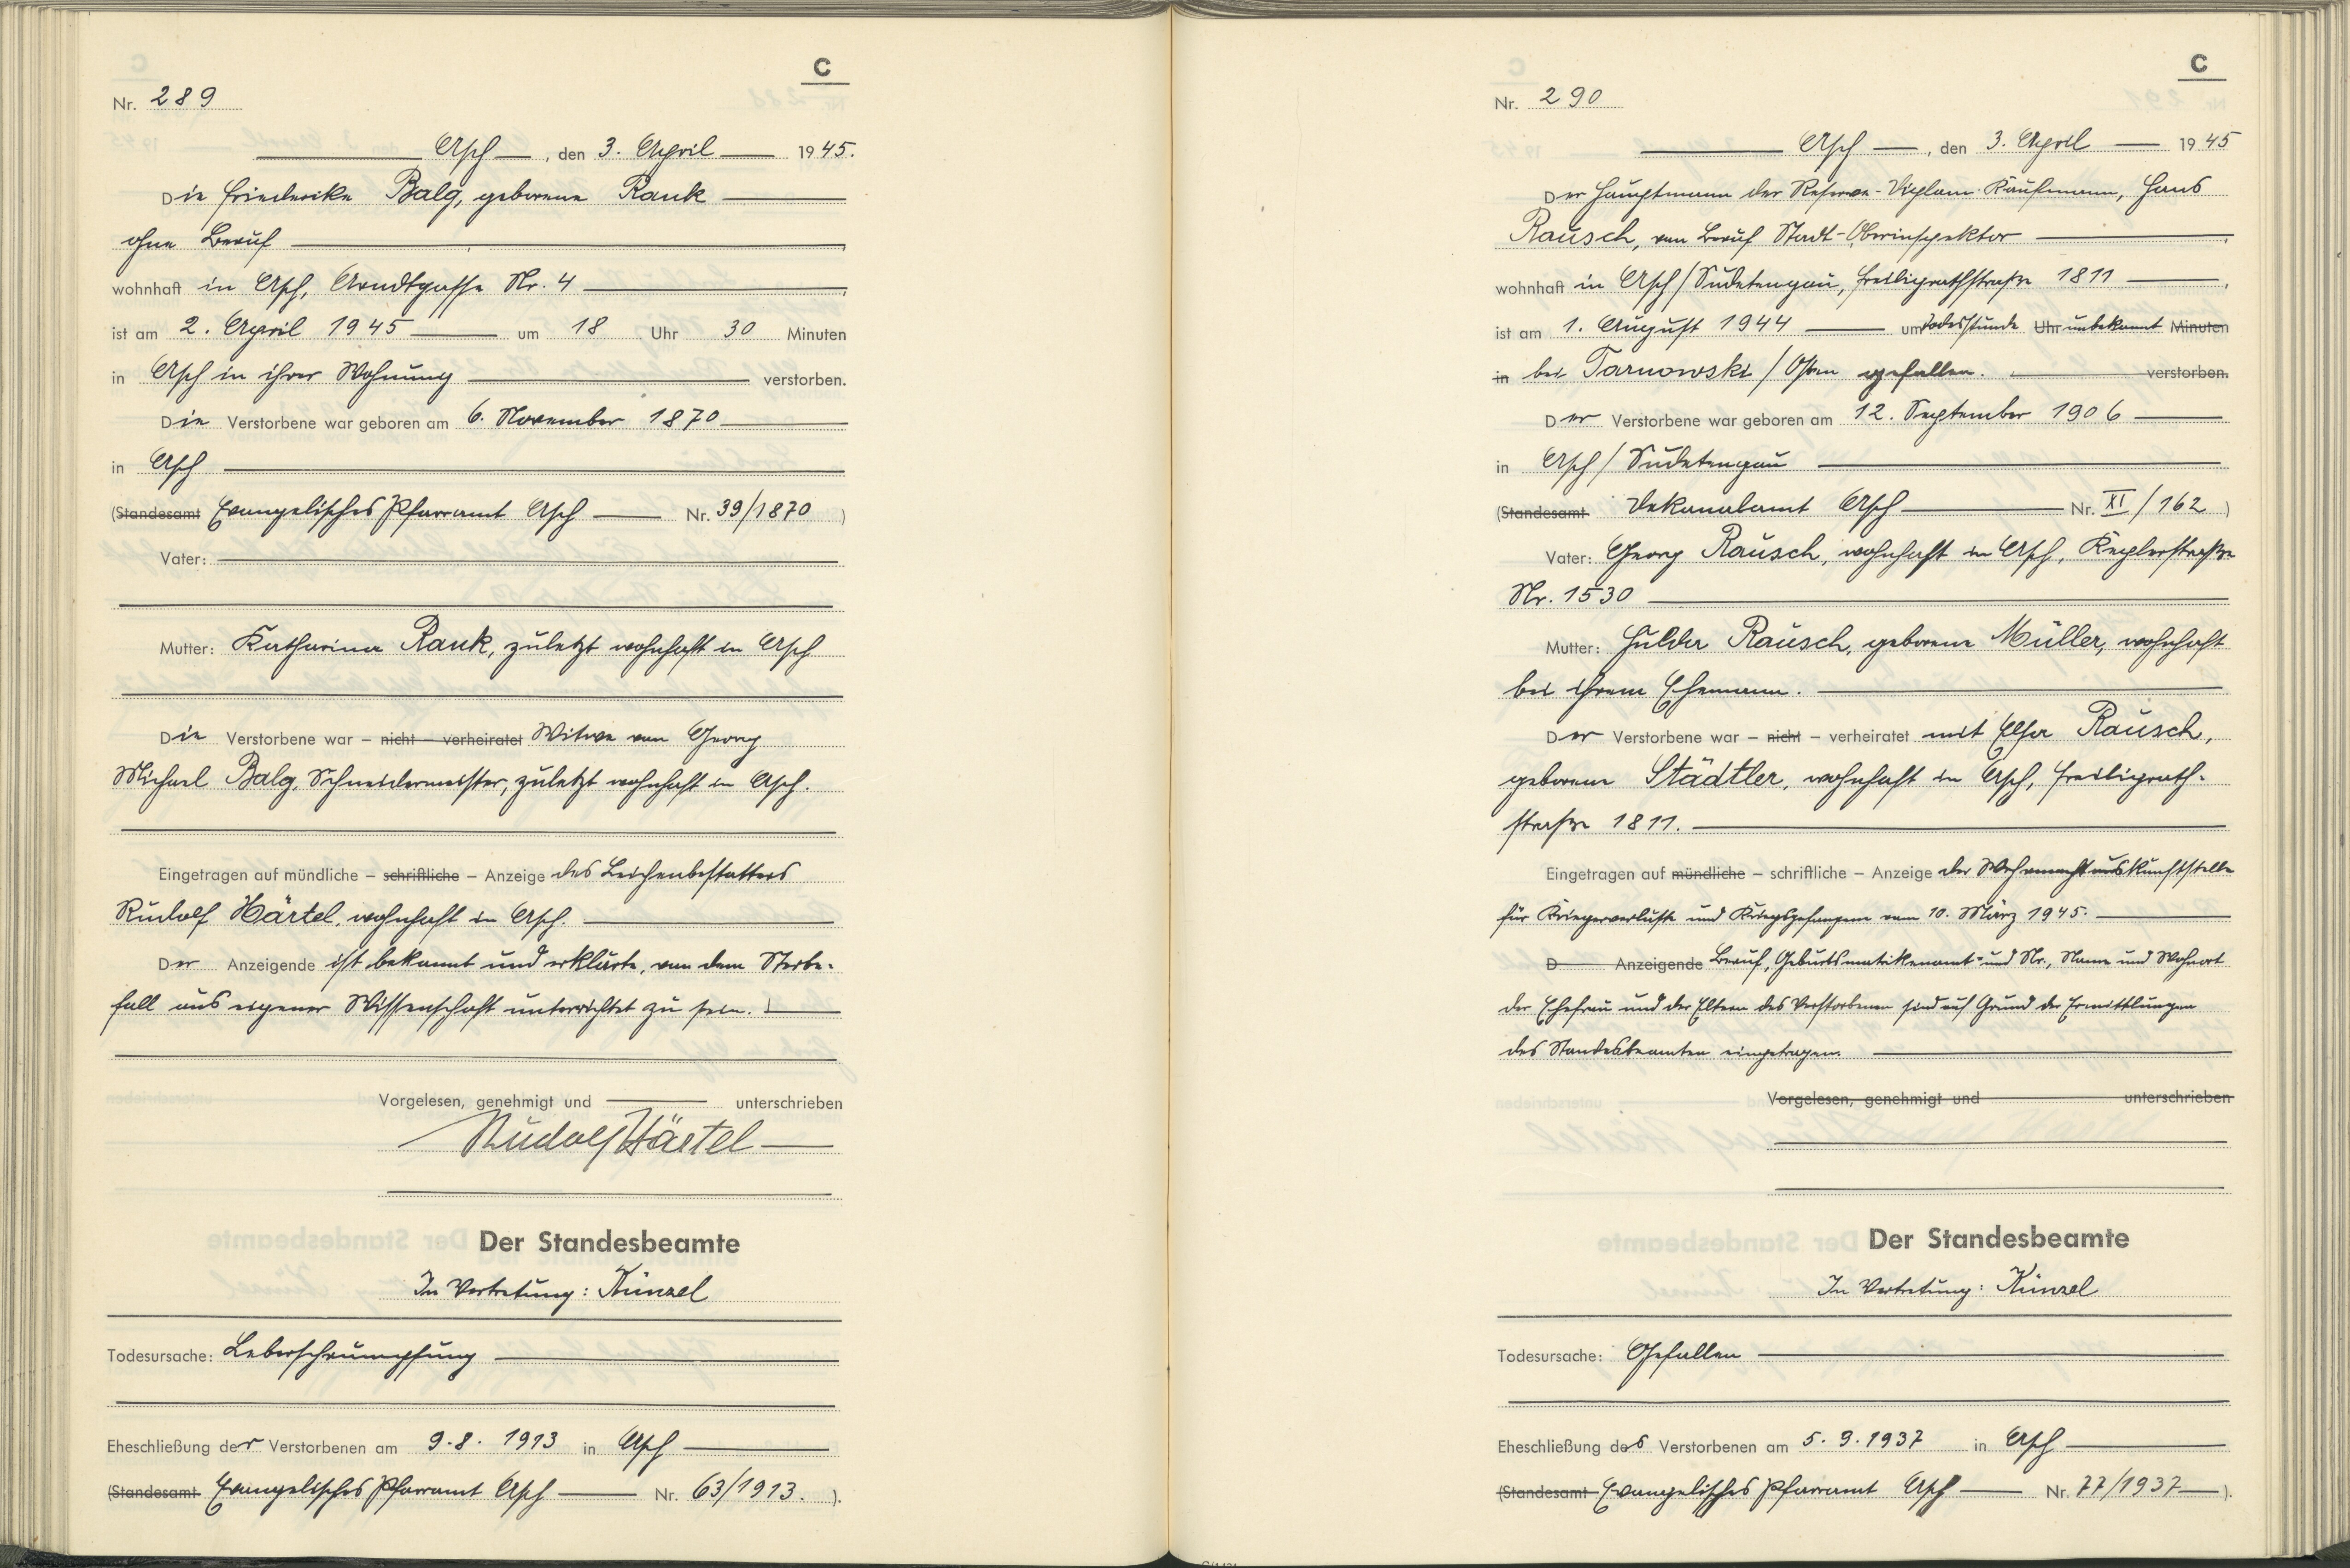 C
Nr. 289
Asch, den 3. April 1945.
Die Friederike Balg, geborene Rank
ohne Beruf
wohnhaft in Asch, Arndtgasse Nr. 4
ist am 2. April 1945 um 18 Uhr 30 Minuten
in Asch in ihrer Wohnung verstorben.
Die Verstorbene war geboren am 6. November 1870
in Asch
(Standesamt Evangelisches Pfarramt Asch Nr. 39/1870)
Vater:
Mutter: Katharina Rank, zuletzt wohnhaft in Asch
Die Verstorbene war – nicht – verheiratet Witwe von Georg
Michael Balg, Schneidermeister, zuletzt wohnhaft in Asch.
Eingetragen auf mündliche – schriftliche – Anzeige des Leichenbestatters
Rudolf Härtel, wohnhaft in Asch.
Der Anzeigende ist bekannt und erklärte, von dem Sterbe-
fall aus eigener Wissenschaft unterrichtet zu sein.
Vorgelesen, genehmigt und unterschrieben
Rudolf Härtel
Der Standesbeamte
In Vertretung: Künzel
Todesursache: Leberschrumpfung
Eheschließung der Verstorbenen am 9.8. 1913 in Asch
(Standesamt Evangelisches Pfarramt Asch Nr. 63/1913.).
C
Nr. 290
Asch, den 3. April 1945
Der Hauptmann der Reserve - Diplom-Kaufmann, Hans
Rausch, von Beruf Stadt-Oberinspektor
wohnhaft in Asch/Sudetengau, Freiligrathstraße 1811
ist am 1. August 1944 um Todesstunde Uhr unbekannt Minuten
in bei Tarnowski/Osten gefallen. verstorben.
Der Verstorbene war geboren am 12. September 1906
in Asch/Sudetengau
(Standesamt Dekanalamt Asch Nr. XI/162)
Vater: Georg Rausch, wohnhaft in Asch, Keplerstraße
Nr. 1530
Mutter: Hulda Rausch, geborene Müller, wohnhaft
bei ihrem Ehemann.
Der Verstorbene war – nicht – verheiratet mit Elsa Rausch,
geborene Städtler, wohnhaft in Asch, Freiligrath-
straße 1811.
Eingetragen auf mündliche – schriftliche – Anzeige der Wehrmachtauskunftstelle
für Kriegerverluste und Kriegsgefangene vom 10. März 1945.
D Anzeigende Beruf, Geburtsmatrikenamt- und Nr., Name und Wohnort
der Ehefrau und der Eltern des Verstorbenen sind auf Grund der Ermittlungen
des Standesbeamten eingetragen.
Vorgelesen, genehmigt und unterschrieben
Der Standesbeamte
In Vertretung: Künzel
Todesursache: Gefallen
Eheschließung des Verstorbenen am 5. 9. 1937 in Asch
(Standesamt Evangelisches Pfarramt Asch Nr. 77/1937).